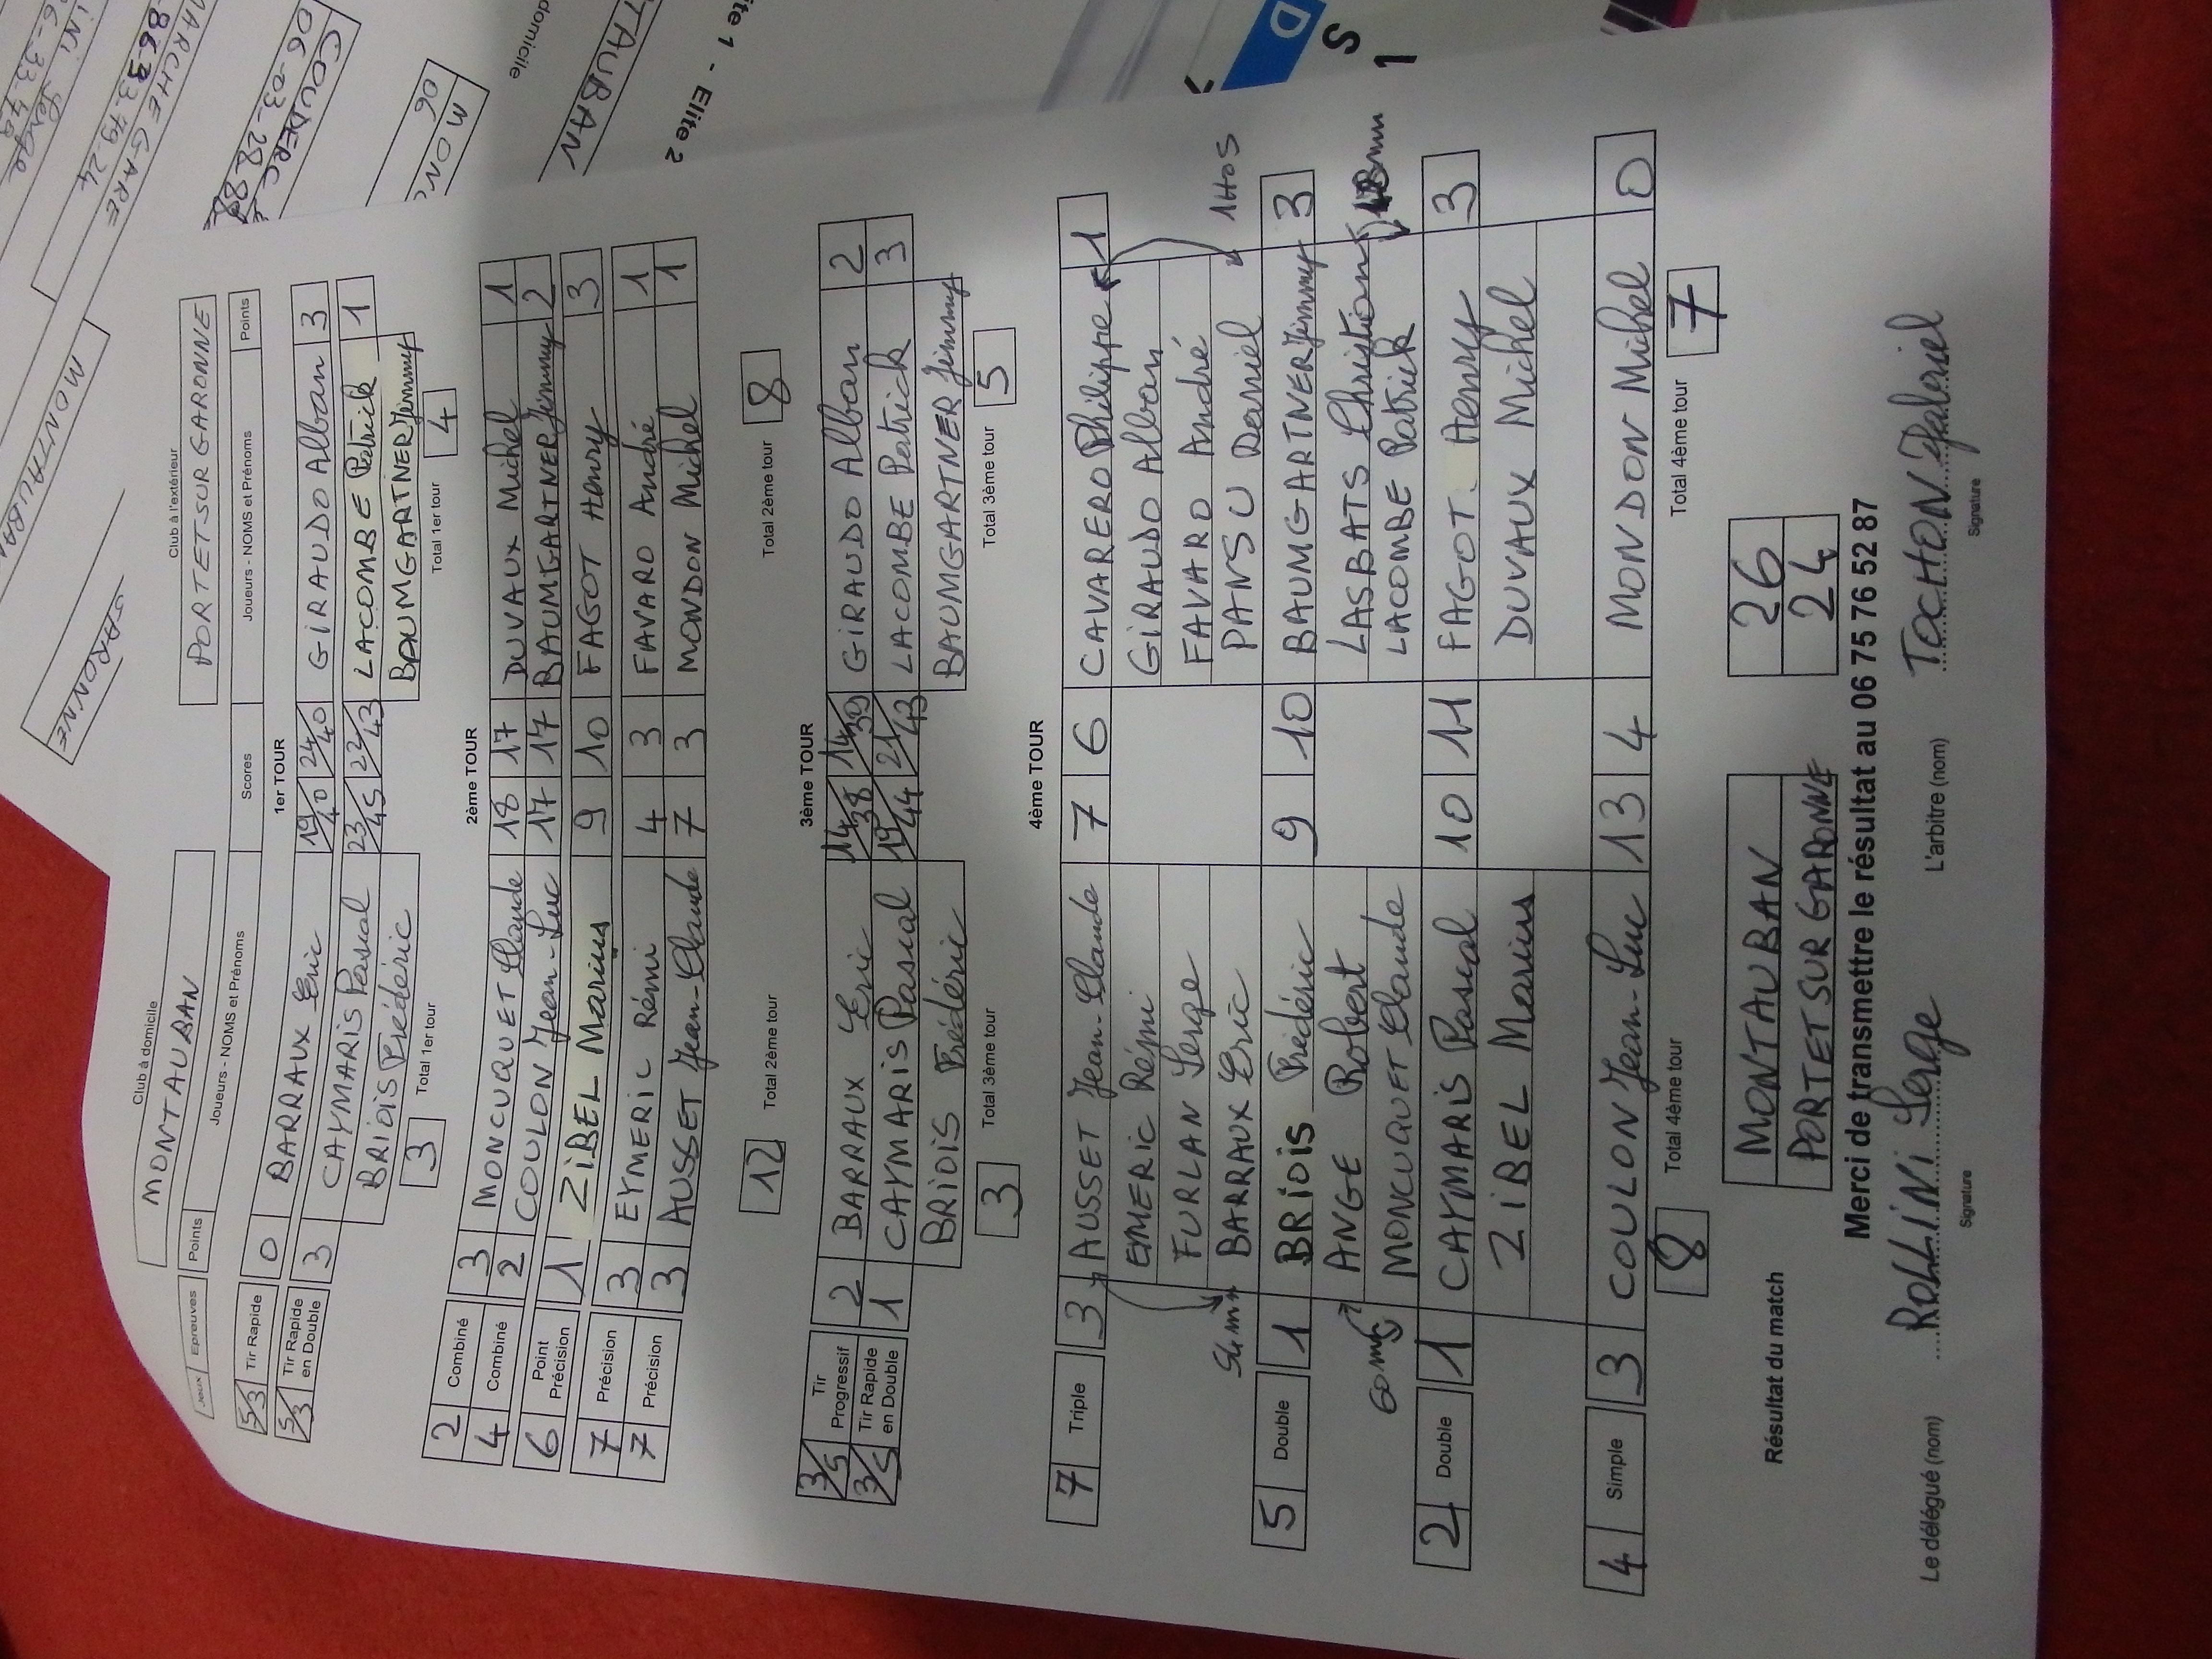 Club à domicile
Club à l'extérieur
MONTAUBAN
PORTET SUR GARONNE
Jeux Epreuves Points Joueurs - NOMS et Prénoms Scores Joueurs - NOMS et Prénoms Points
1er TOUR
5/3 Tir Rapide 0 BARRAUX Eric 19/40 24/40 GIRAUDO Alban 3
5/3 Tir Rapide en Double 3 CAYMARIS Pascal 23/45 22/43 LACOMBE Patrick 1
BRIOIS Frédéric BAUMGARTNER Jimmy
3 Total 1er tour Total 1er tour 4
2ème TOUR
2 Combiné 3 MONCUQUET Claude 18 17 DUVAUX Michel 1
4 Combiné 2 COULON Jean-Luc 17 17 BAUMGARTNER Jimmy 2
6 Point Précision 1 ZIBEL Marius 9 10 FAGOT Henry 3
7 Précision 3 EYMERIC Rémi 4 3 FAVARO André 1
7 Précision 3 AUSSET Jean-Claude 7 3 MONDON Michel 1
12 Total 2ème tour Total 2ème tour 8
3ème TOUR
3/5 Tir Progressif 2 BARRAUX Eric 14/38 14/39 GIRAUDO Alban 2
3/5 Tir Rapide en Double 1 CAYMARIS Pascal 19/44 21/43 LACOMBE Patrick 3
BRIOIS Frédéric BAUMGARTNER Jimmy
3 Total 3ème tour Total 3ème tour 5
4ème TOUR
7 Triple 3 AUSSET Jean-Claude 7 6 CAVARERO Philippe 1
EYMERIC Rémi GIRAUDO Alban
FURLAN Serge FAVARO André
BARRAUX Eric PANSU Daniel
5 Double 1 BRIOIS Frédéric 9 10 BAUMGARTNER Jimmy 3
ANGE Robert LASBATS Christian
MONCUQUET Claude LACOMBE Patrick
2 Double 1 CAYMARIS Pascal 10 11 FAGOT Henry 3
ZIBEL Marius DUVAUX Michel
4 Simple 3 COULON Jean-Luc 13 4 MONDON Michel 0
8 Total 4ème tour Total 4ème tour 7
Résultat du match MONTAUBAN 26
PORTET SUR GARONNE 24
Merci de transmettre le résultat au 06 75 76 52 87
Le délégué (nom) ROLLINI Serge L'arbitre (nom) TOCHON Gabriel
Signature Signature
MONTAUBAN
GARONNE
MARCHE GARE
COUDERC
06-03-28-88
MON
06
domicile
TAUBAN
ite 1 - Elite 2
D
S
1